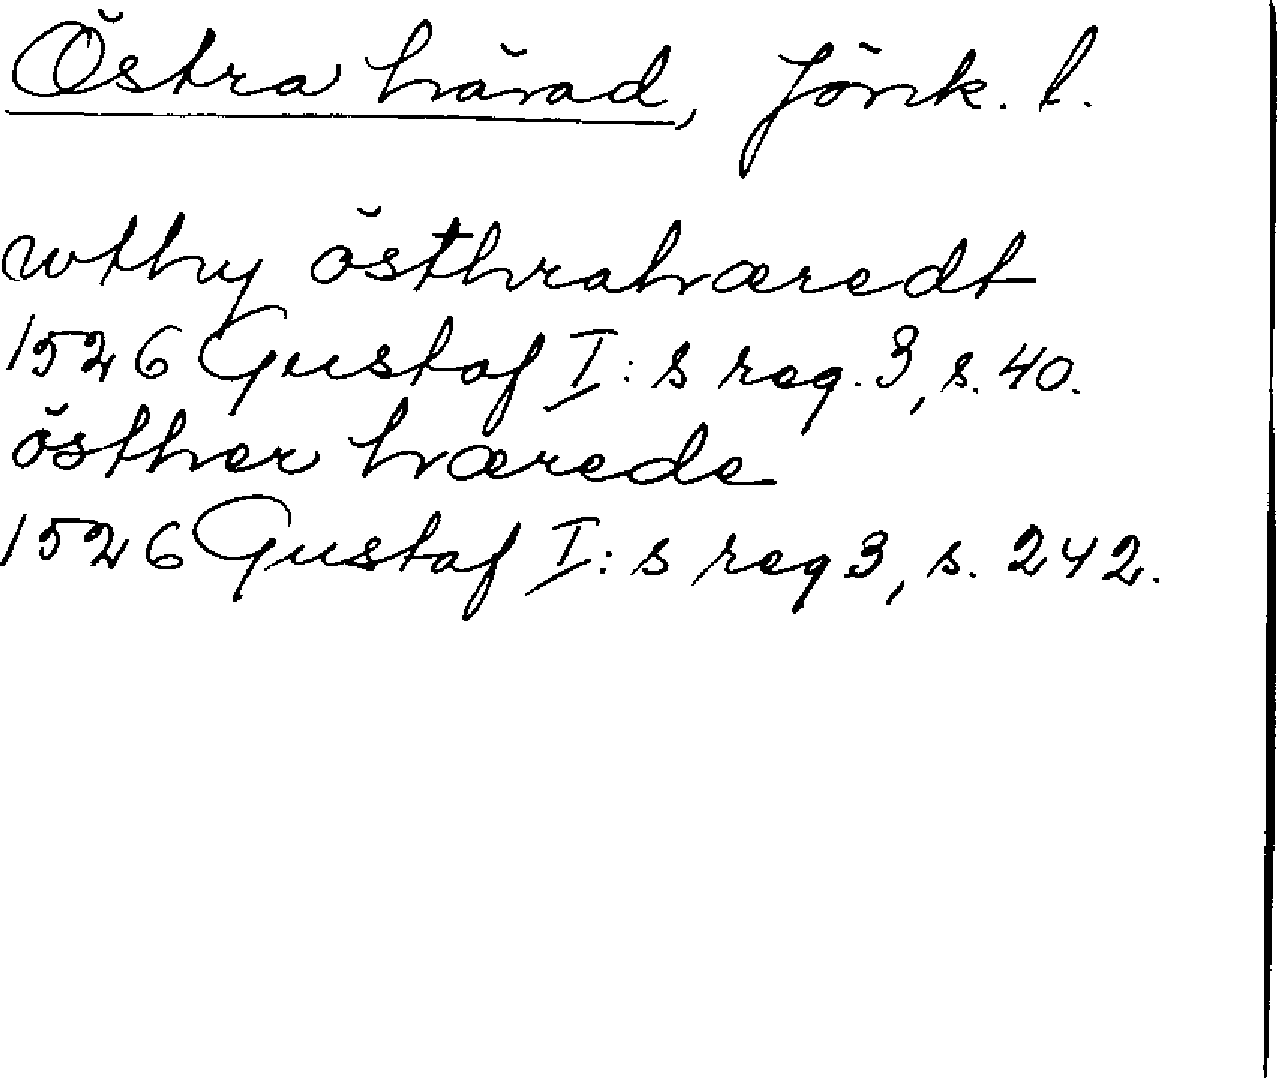 Östra härad, Jönk. l.
wthy östhrahæredt
1526 Gustaf I:s reg. 3, s. 40.
östher hærede
1526 Gustaf I:s reg 3, s. 242.